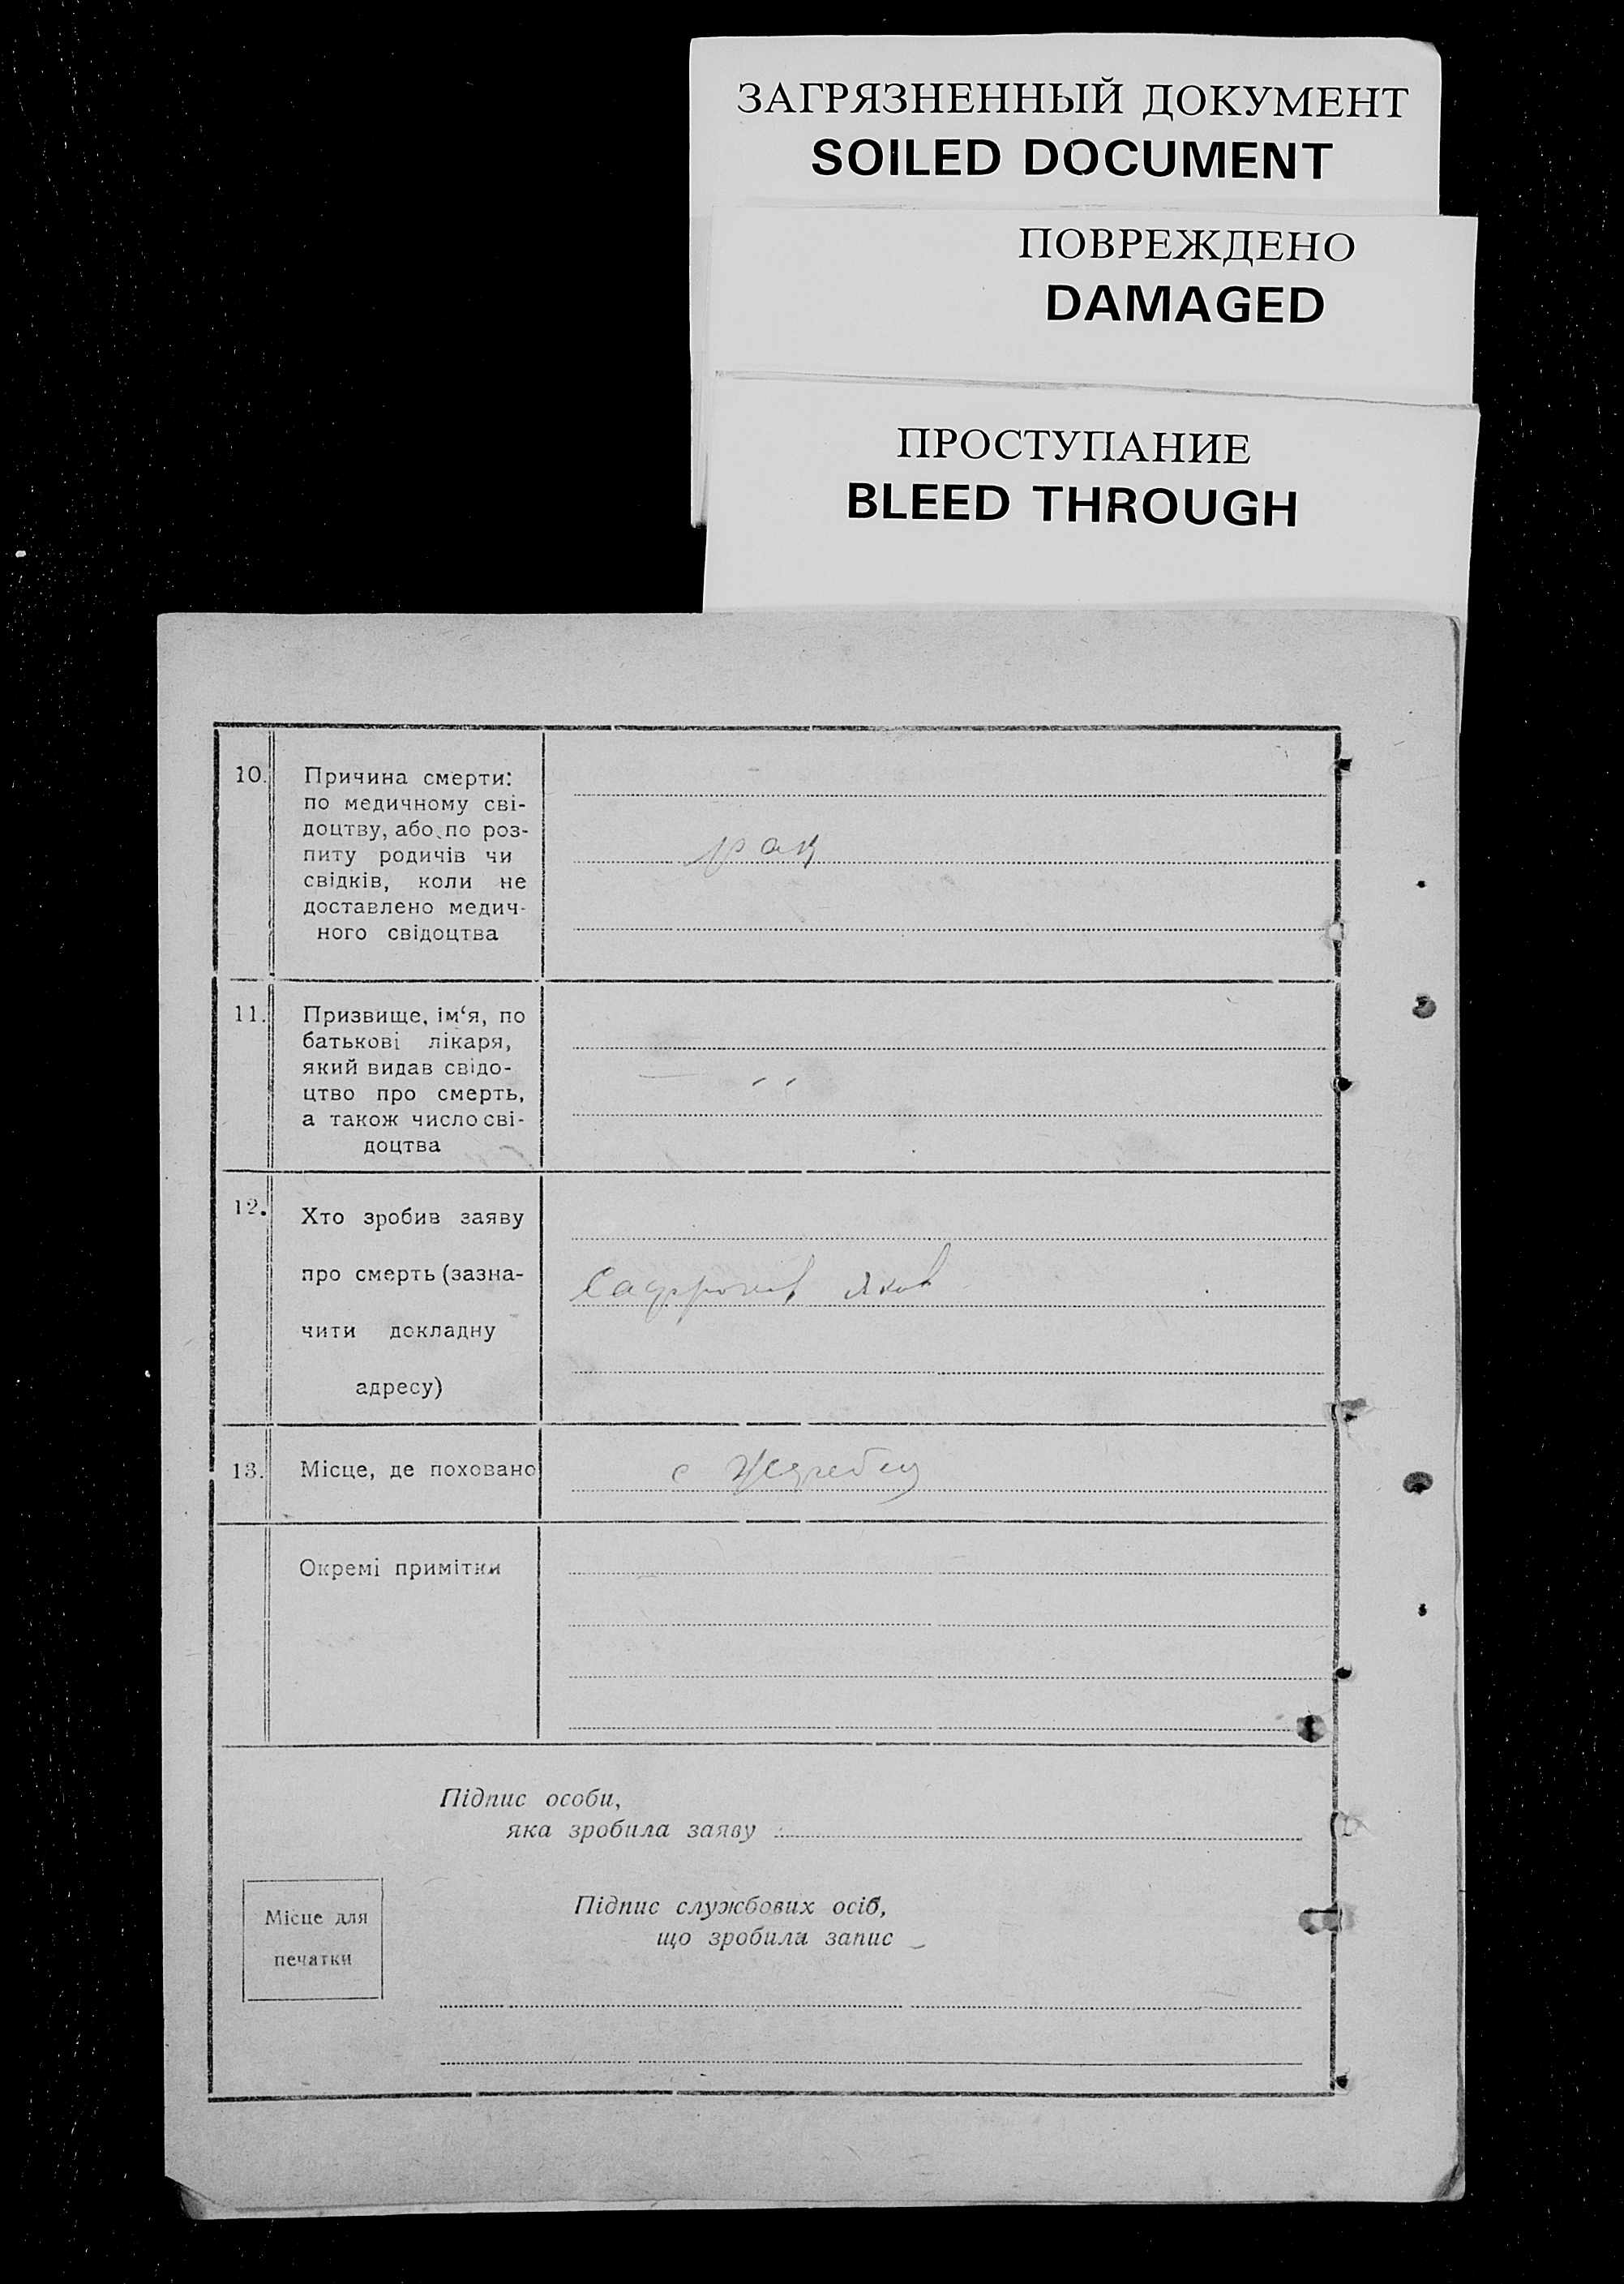 ЗАГРЯЗНЕННЫЙ ДОКУМЕНТ
SOILED DOCUMENT
ПОВРЕЖДЕНО
DAMAGED
ПРОСТУПАНИЕ
BLEED THROUGH
10. Причина смерти:
по медичному сві-
доцтву, або по роз-
питу родичів чи
рак
свідків, коли не
доставлено медич-
ного свідоцтва
11. Призвище, ім‘я, по
батькові лікаря,
який видав свідо-
цтво про смерть,
а також число сві-
доцтва
12. Хто зробив заяву
про смерть (зазна-
Яков
чити докладну
адресу)
13. Місце, де поховано с Жеребец
Окремі примітки
Підпис особи,
яка зробила заяву
Місце для
печатки
Підпис службових осіб,
що зробили запис